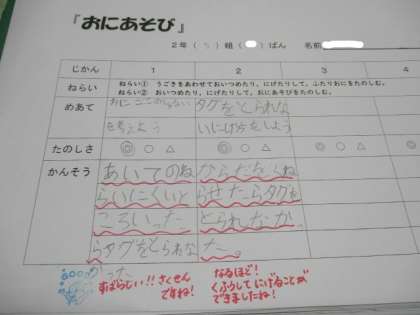 『おにあそび』
2年( 5 )組( )ばん 名前
じかん 1 2 3 4
ねらい ねらい① うごきをあわせておいつめたり、にげたりして、ふたりおにをたのしむ。
ねらい② おいつめたり、にげたりして、おにあそびをたのしむ。
めあて
を考えよう
タグをとられな
いにげ方をしよう
たのしさ ◎ ○ △ ◎ ○ △ ◎ ○ △ ◎
かんそう
あいてのね
らいにくいと
ころいった
らタグをとられな
かった
からだをくね
らせたらタグを
とられなか
った。
すばらしい!!さくせん
ですね!
なるほど!
くふうしてにげることが
できましたね!